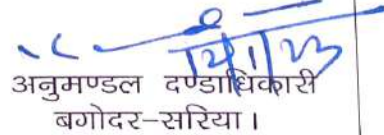 अनुमण्डल दण्डाधिकारी
बगोदर-सरिया।